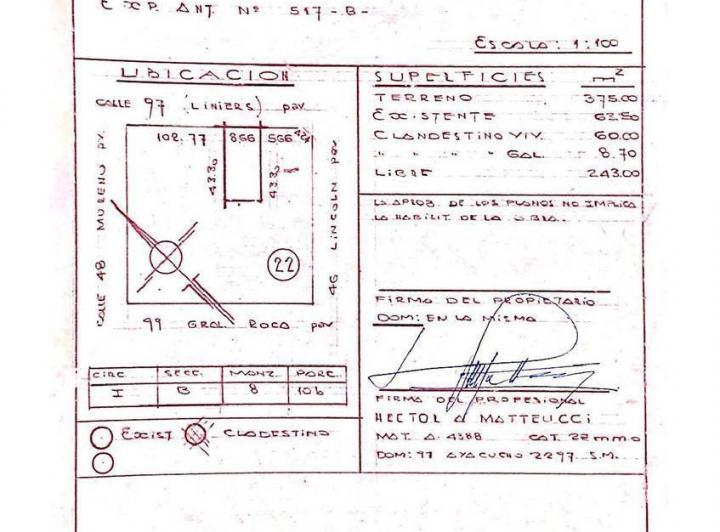 EXP. ANT. Nº 517-B-
ESCALA: 1:100
UBICACION
CALLE 97 (LINIERS) pav
102.77 8,66 5,66 4,24
43.30 43.30
CALLE 48 MORENO PV.
46 LINCOLN pav
22
99 GRAL. ROCA pav
CIRC. SECC. MANZ. PARC.
I B 8 10b
EXIST CLADESTINO
SUPERFICIES m2
TERRENO 375.00
EXISTENTE 63.50
CLANDESTINO VIV. 60.00
" " " GAL. 8.70
LIBRE 243.00
LA APROB. DE LOS PLANOS NO IMPLICA
LA HABILIT. DE LA OBRA.
FIRMA DEL PROPIETARIO
DOM: EN LA MISMA
FIRMA DEL PROFESIONAL
HECTOR A MATTEUCCI
MAT. A. 4388 CAT.
DOM: 97 AYACUCHO 2297 S.M.